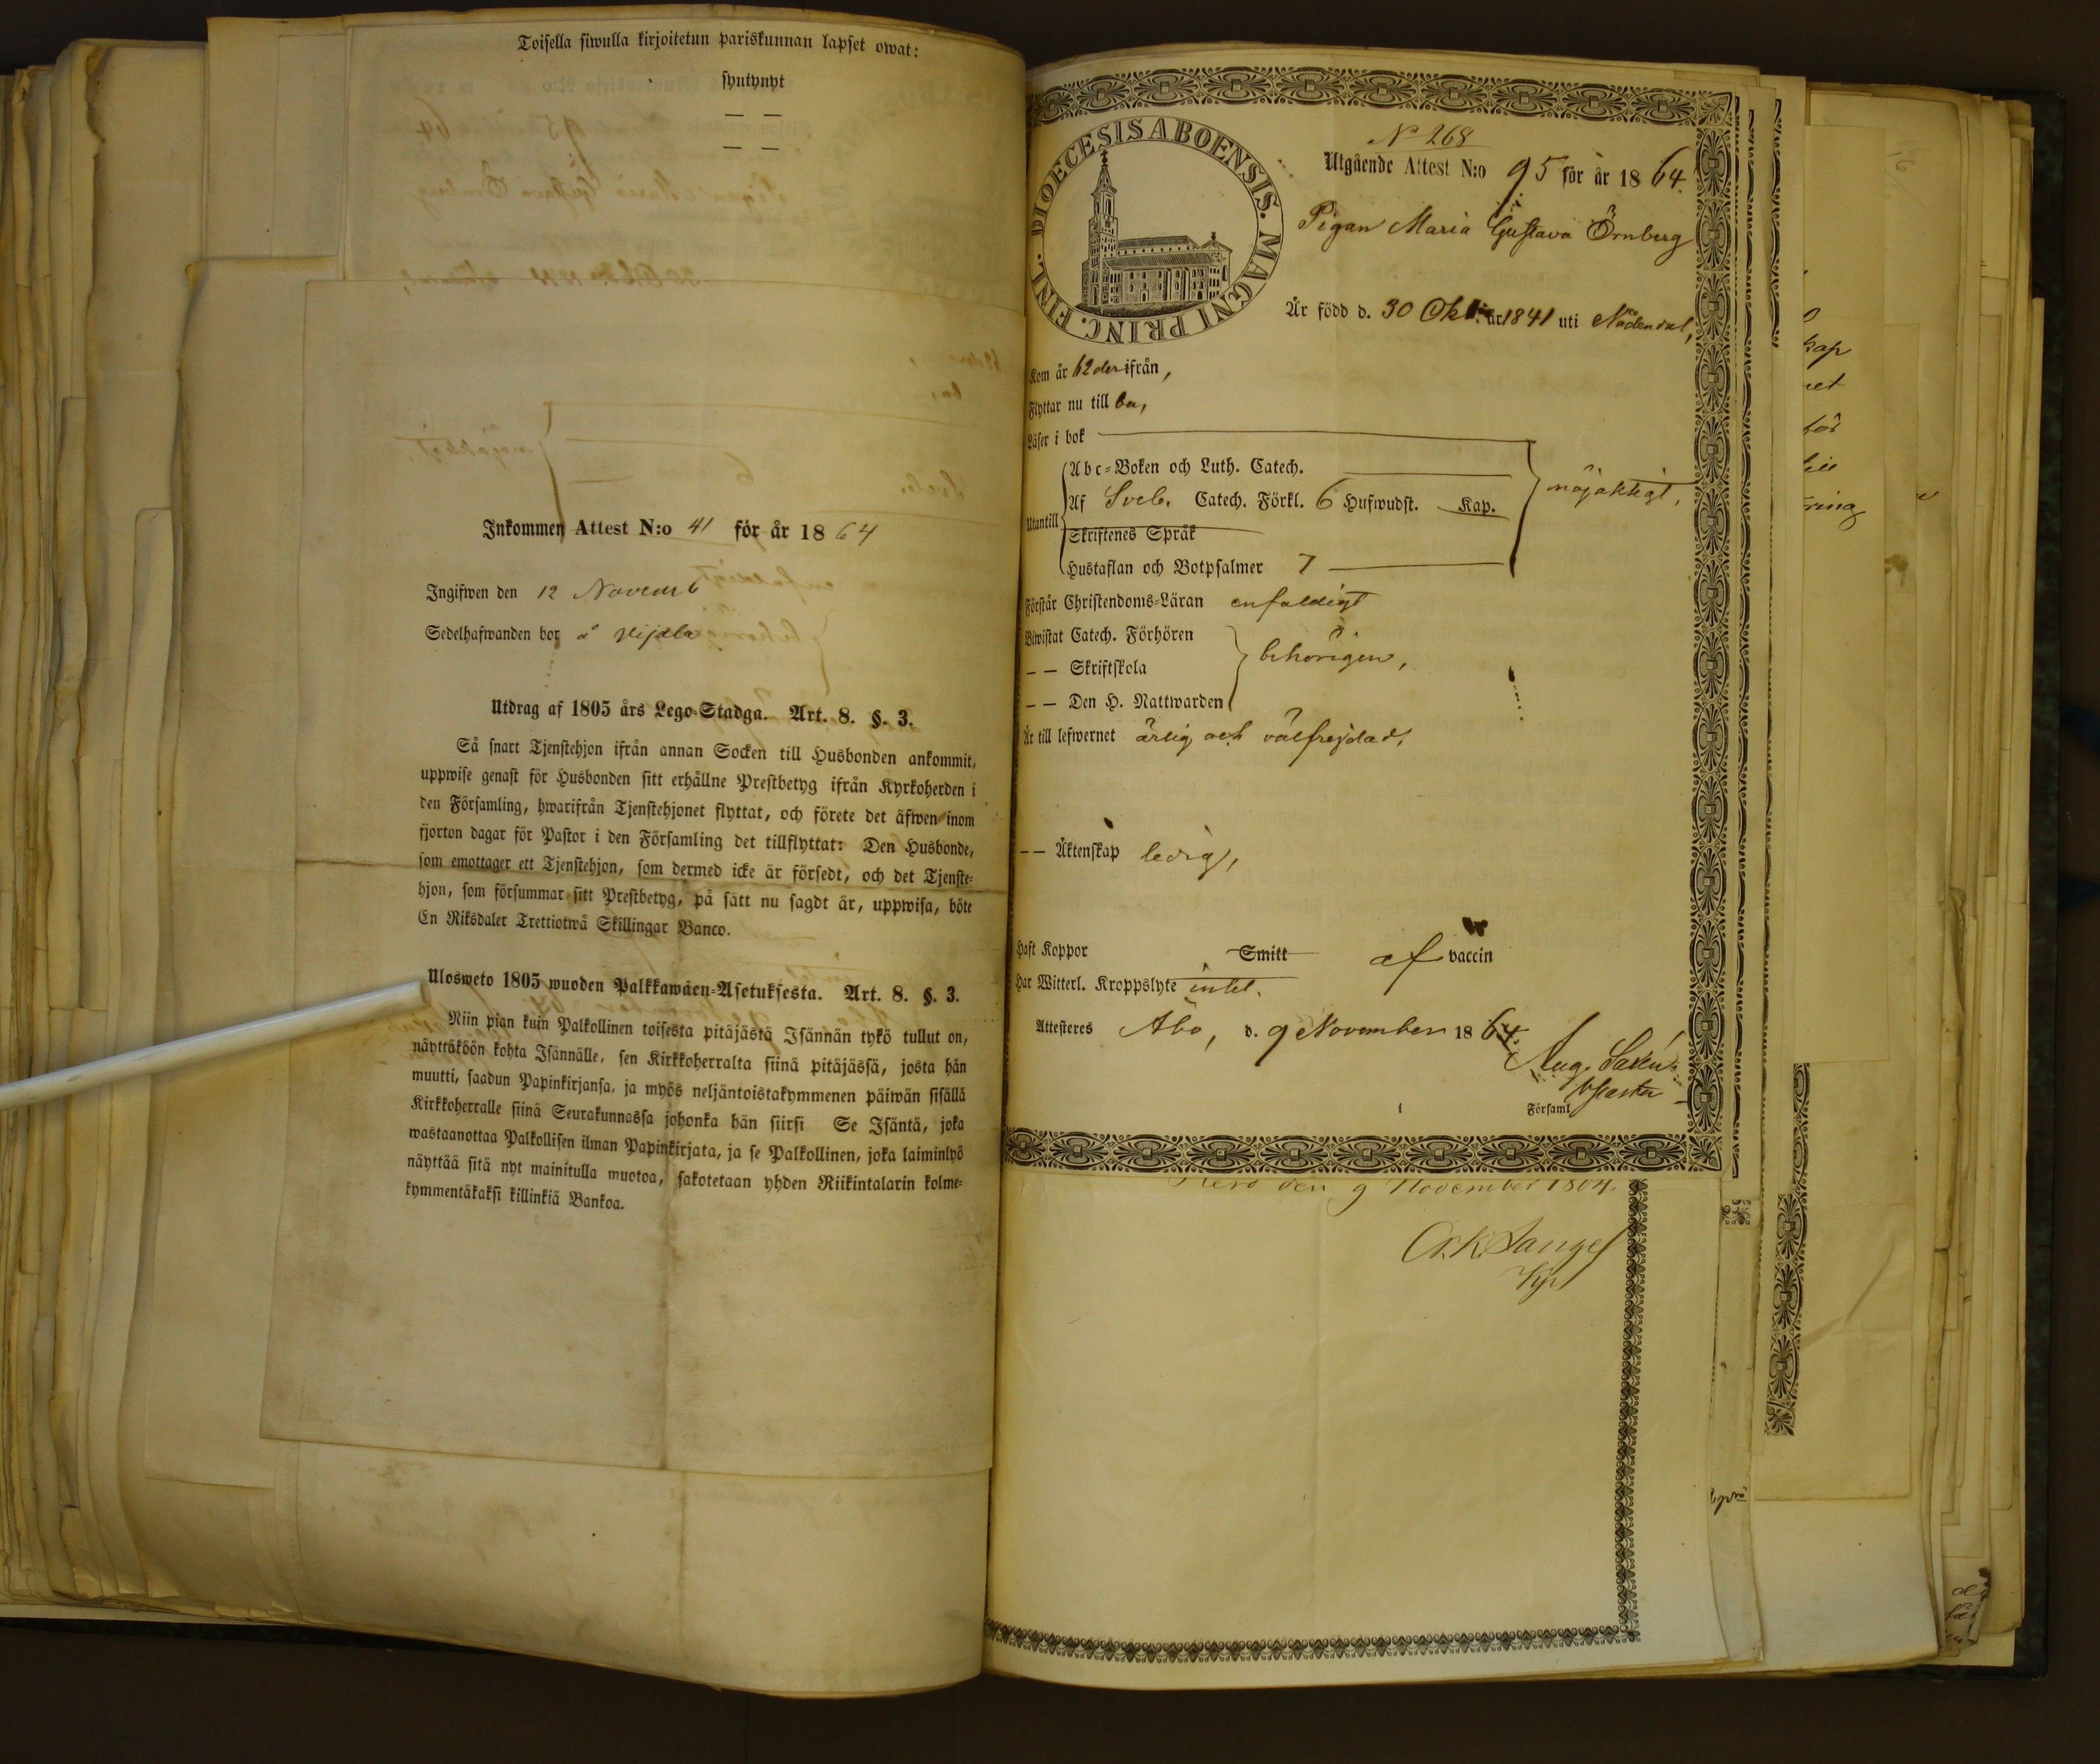 Toisella siwulla kirjoitetun pariskunnan lapset owat:
syntynyt
— —
— —
Inkommen Attest N:o 41 för år 1864
Ingifwen den 12 Novemb
Sedelhafwanden bor å Vijala
Utdrag af 1805 års Lego-Stadga. Art. 8. §. 3.
Så snart Tjenstehjon ifrån annan Socken till Husbonden ankommit,
uppwise genast för Husbonden sitt erhållne Prestbetyg ifrån Kyrkoherden i
den Församling, hwarifrån Tjenstehjonet flyttat, och förete det äfwen inom
fjorton dagar för Pastor i den Församling det tillflyttat: Den Husbonde,
som emottager ett Tjenstehjon, som dermed icke är försedt, och det Tjenste-
hjon, som försummar sitt Prestbetyg, på sätt nu sagdt är, uppwisa, böte
En Riksdaler Trettiotwå Skillingar Banco.
Ulosweto 1805 wuoden Palkkawäen-Asetuksesta. Art. 8. §. 3.
Niin pian kuin Palkollinen toisesta pitäjästä Isännän tykö tullut on,
näyttäköön kohta Isännälle, sen Kirkkoherralta siinä pitäjässä, josta hän
muutti, saadun Papinkirjansa, ja myös neljäntoistakymmenen päiwän sisällä
Kirkkoherralle siinä Seurakunnassa johonka hän siirsi Se Isäntä, joka
wastaanottaa Palkollisen ilman Papinkirjata, ja se Palkollinen, joka laiminlyö
näyttää sitä nyt mainitulla muotoa, sakotetaan yhden Riikintalarin kolme-
kymmentäkaksi killinkiä Bankoa.
DIOECESIS ABOENSIS. MAGNI PRINC. FINL.
N 268
Utgående Attest N:o 95 för år 1864.
Pigan Maria Gustava Örnberg
Är född d. 30 Oktbr år 1841 uti Nådendal,
Kom år 62 der ifrån,
Flyttar nu till
Läser i bok
Abc-Boken och Luth. Catech.
Utantill
Af Sveb. Catech. Förkl. 6 Hufwudst. Kap.
nöjaktigt,
Skriftenes Språk
Hustaflan och Botpsalmer 7
Förstår Christendoms-Läran enfaldigt
Biwistat Catech. Förhören
— — Skriftskola
behörigen,
— — Den H. Nattwarden
Är till lefwernet ärlig och välfrejdad,
— — Äktenskap ledig,
Haft Koppor Smitt af vaccin
Har Witterl. Kroppslyte intet.
Attesteres Åbo, d. 9 November 1864.
Aug.
i Församl
den 9 November 1864.